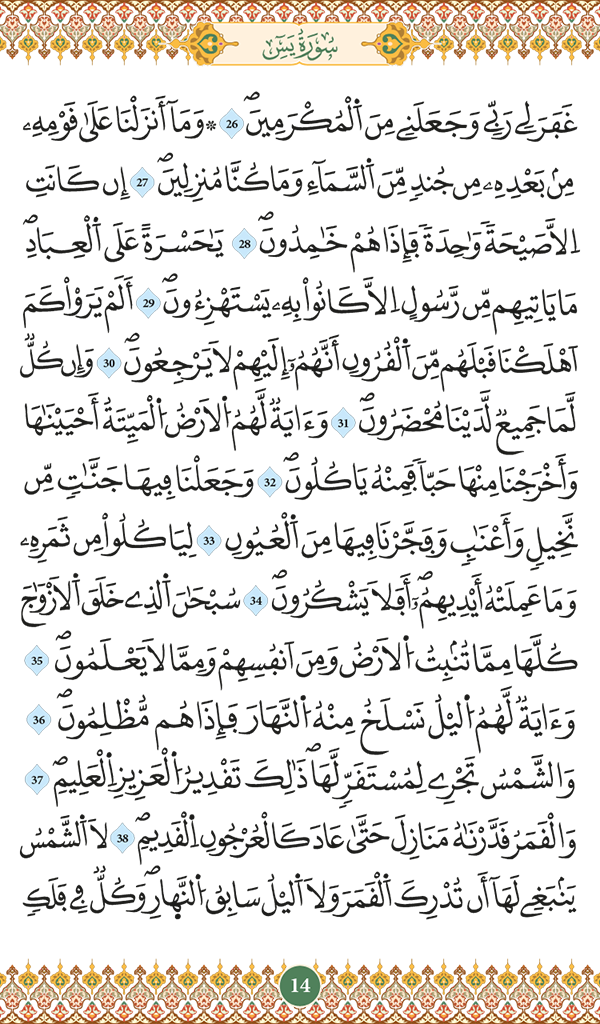 سُورَةُ يَسٓ
غَفَرَ لِے رَبِّے وَجَعَلَنِے مِنَ اَ۬لْمُكْرَمِينَۖ 26 ۞وَمَآ أَنزَلْنَا عَلَىٰ قَوْمِهِۦ
مِنۢ بَعْدِهِۦ مِن جُندٖ مِّنَ اَ۬لسَّمَآءِ وَمَا كُنَّا مُنزِلِينَۖ 27 إِن كَانَتِ
اِلَّا صَيْحَةٗ وَٰحِدَةٗ فَإِذَا هُمْ خَٰمِدُونَۖ 28 يَٰحَسْرَةً عَلَى اَ۬لْعِبَادِۖ
مَا يَاتِيهِم مِّن رَّسُولٍ اِلَّا كَانُواْ بِهِۦ يَسْتَهْزِءُونَۖ 29 أَلَمْ يَرَوْاْ كَمَ
اَهْلَكْنَا قَبْلَهُم مِّنَ اَ۬لْقُرُونِ أَنَّهُمُۥٓ إِلَيْهِمْ لَا يَرْجِعُونَۖ 30 وَإِن كُلّٞ
لَّمَا جَمِيعٞ لَّدَيْنَا مُحْضَرُونَۖ 31 وَءَايَةٞ لَّهُمُ اُ۬لَارْضُ اُ۬لْمَيِّتَةُ أَحْيَيْنَٰهَا
وَأَخْرَجْنَا مِنْهَا حَبّاٗ فَمِنْهُ يَاكُلُونَۖ 32 وَجَعَلْنَا فِيهَا جَنَّٰتٖ مِّن
نَّخِيلٖ وَأَعْنَٰبٖ وَفَجَّرْنَا فِيهَا مِنَ اَ۬لْعُيُونِ 33 لِيَاكُلُواْ مِن ثَمَرِهِۦ
وَمَا عَمِلَتْهُ أَيْدِيهِمُۥٓۖ أَفَلَا يَشْكُرُونَۖ 34 سُبْحَٰنَ اَ۬لذِے خَلَقَ اَ۬لَازْوَٰجَ
كُلَّهَا مِمَّا تُنۢبِتُ اُ۬لَارْضُ وَمِنَ اَنفُسِهِمْ وَمِمَّا لَا يَعْلَمُونَۖ 35
وَءَايَةٞ لَّهُمُ اُ۬ليْلُ نَسْلَخُ مِنْهُ اُ۬لنَّهَارَ فَإِذَا هُم مُّظْلِمُونَۖ 36
وَالشَّمْسُ تَجْرِے لِمُسْتَقَرّٖ لَّهَاۖ ذَٰلِكَ تَقْدِيرُ اُ۬لْعَزِيزِ اِ۬لْعَلِيمِۖ 37
وَالْقَمَرُ قَدَّرْنَٰهُ مَنَازِلَ حَتَّىٰ عَادَ كَالْعُرْجُونِ اِ۬لْقَدِيمِۖ 38 لَا اَ۬لشَّمْسُ
يَنۢبَغِے لَهَآ أَن تُدْرِكَ اَ۬لْقَمَرَ وَلَا اَ۬ليْلُ سَابِقُ اُ۬لنَّهٰ۪ارِۖ وَكُلّٞ فِے فَلَكٖ
14